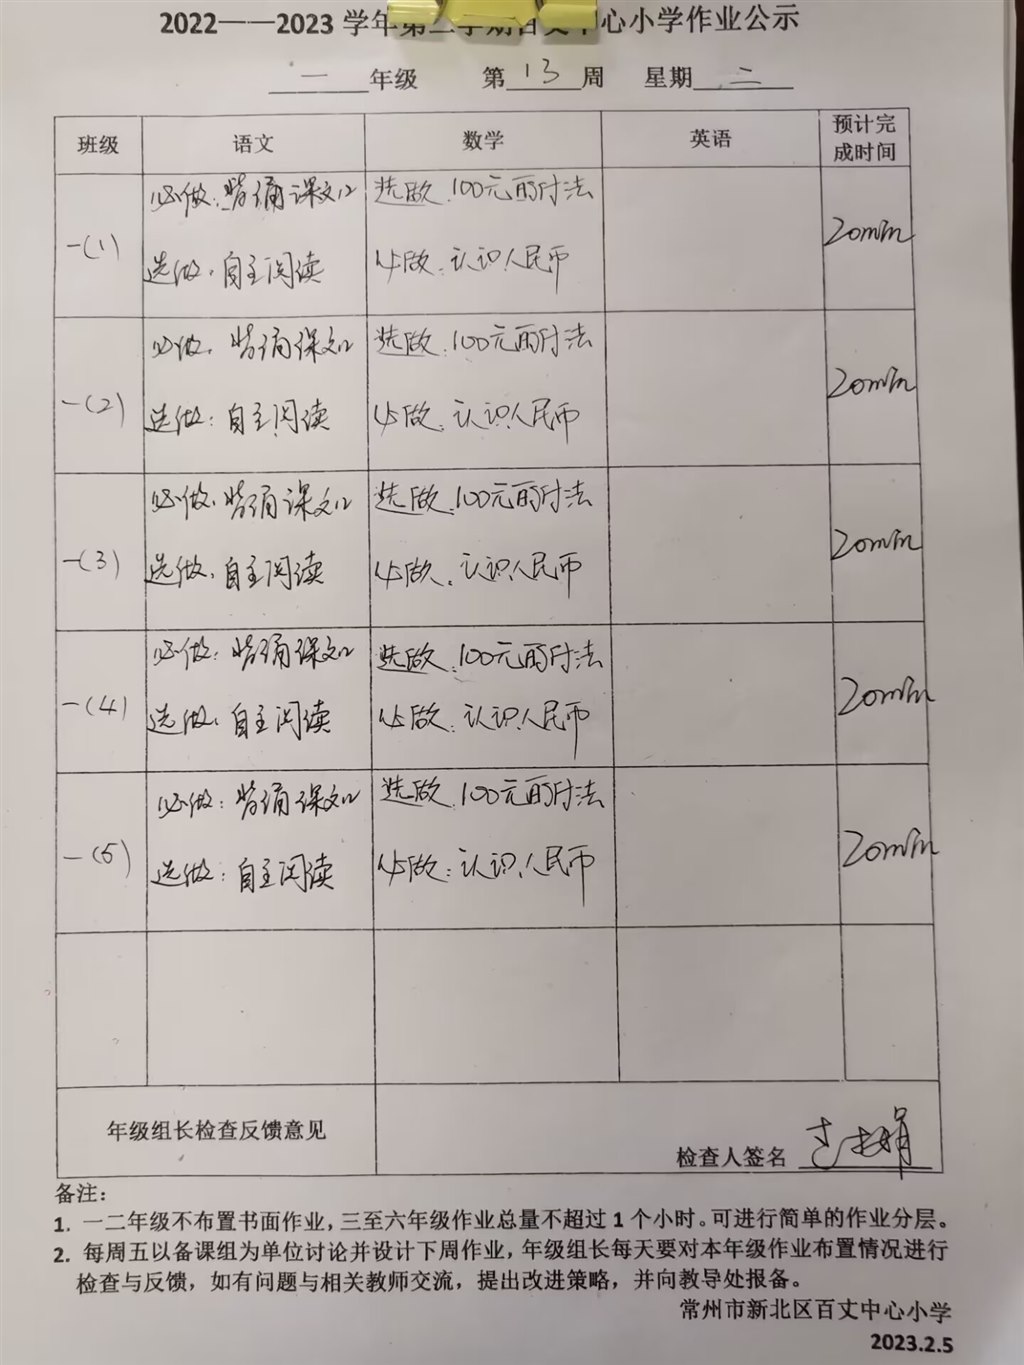 2022——2023 学年第二学期百丈中心小学作业公示
一 年级 第 13 周 星期 二
班级 语文 数学 英语 预计完成时间
一(1) 必做:背诵课文12 选做:100元的付法 20min
选做:自主阅读 必做:认识人民币
一(2) 必做:背诵课文12 选做:100元的付法 20min
选做:自主阅读 必做:认识人民币
一(3) 必做:背诵课文12 选做:100元的付法 20min
选做:自主阅读 必做:认识人民币
一(4) 必做:背诵课文12 选做:100元的付法 20min
选做:自主阅读 必做:认识人民币
一(5) 必做:背诵课文12 选做:100元的付法 20min
选做:自主阅读 必做:认识人民币
年级组长检查反馈意见
检查人签名
备注:
1. 一二年级不布置书面作业,三至六年级作业总量不超过 1 个小时。可进行简单的作业分层。
2. 每周五以备课组为单位讨论并设计下周作业,年级组长每天要对本年级作业布置情况进行
检查与反馈,如有问题与相关教师交流,提出改进策略,并向教导处报备。
常州市新北区百丈中心小学
2023.2.5